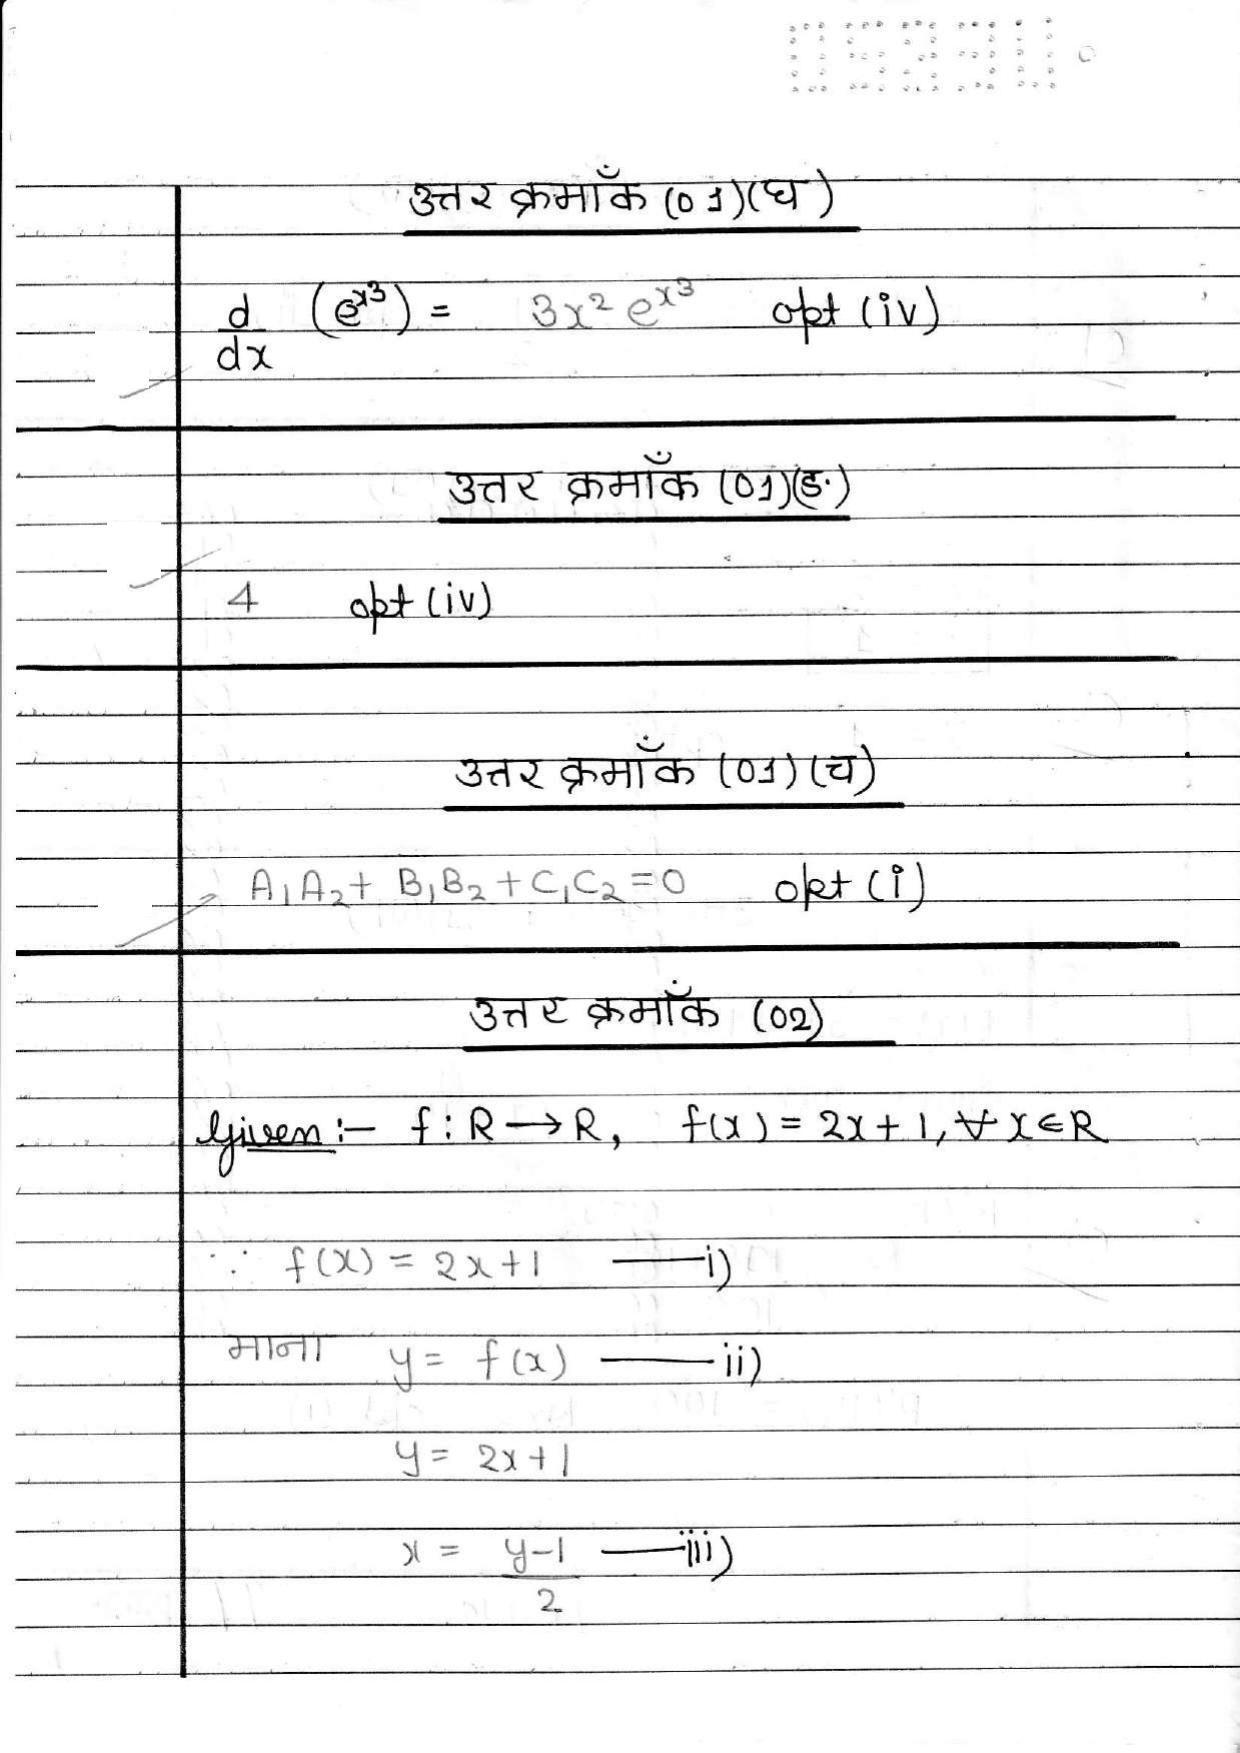 उत्तर क्रमाँक (01)(घ)
d/dx (e^x³) = 3x² e^x³ opt (iv)
उत्तर क्रमाँक (01)(ङ)
4 opt (iv)
उत्तर क्रमाँक (01)(च)
A₁A₂ + B₁B₂ + C₁C₂ = 0 opt (i)
उत्तर क्रमाँक (02)
Given :- f : R → R, f(x) = 2x + 1, ∀ x ∈ R
∵ f(x) = 2x + 1 —— i)
माना y = f(x) —— ii)
y = 2x + 1
x = (y-1)/2 —— iii)